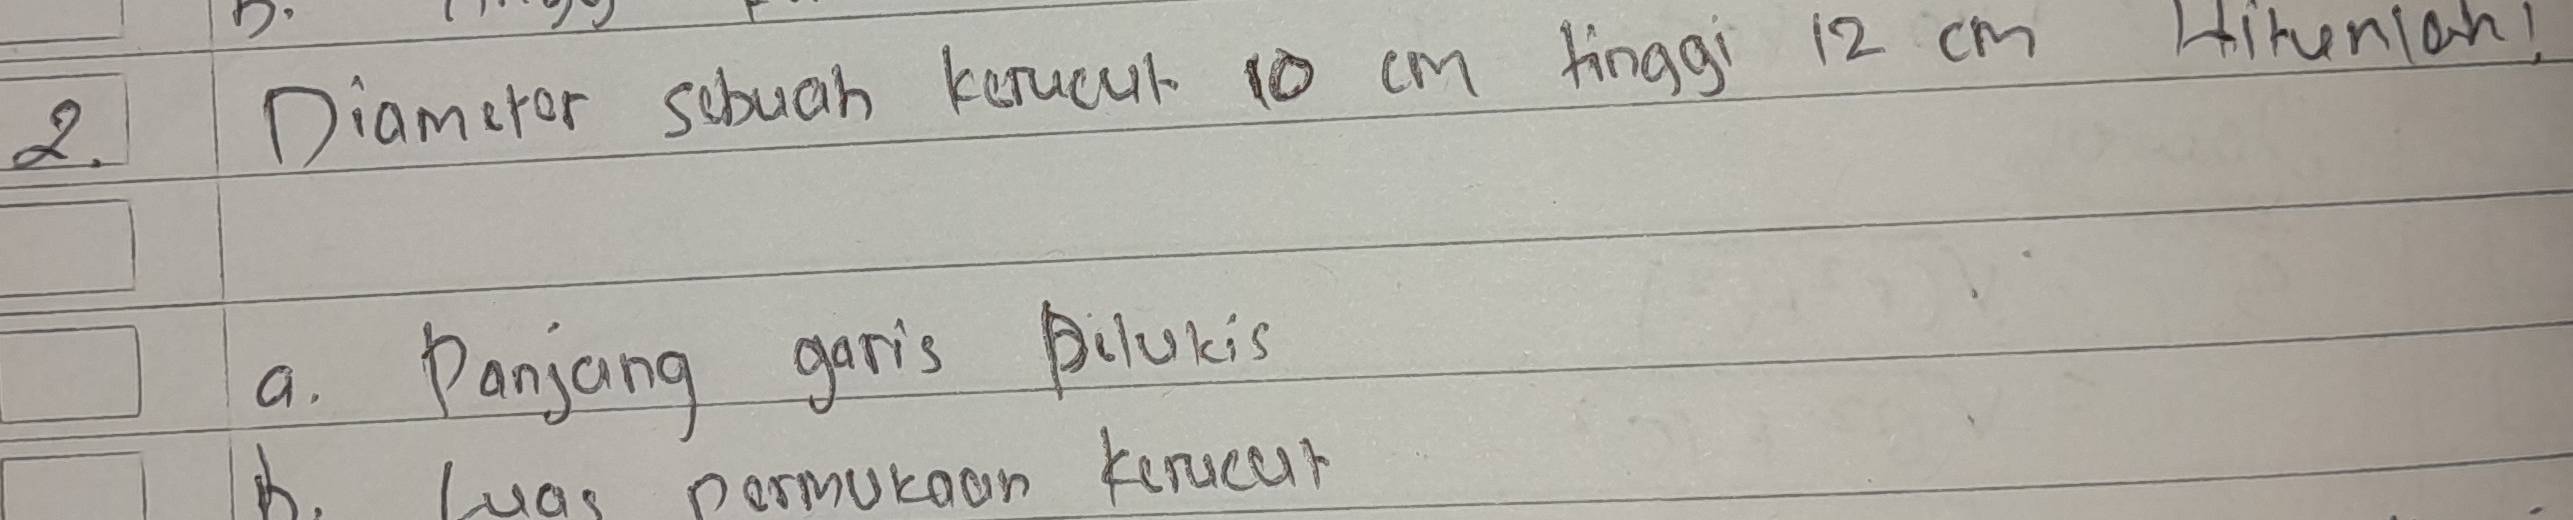 2. Diameter sebuah kerucut 10 cm tinggi 12 cm Hitunlah!
a. Panjang garis Pilukis
b. Luas permukaan kerucut